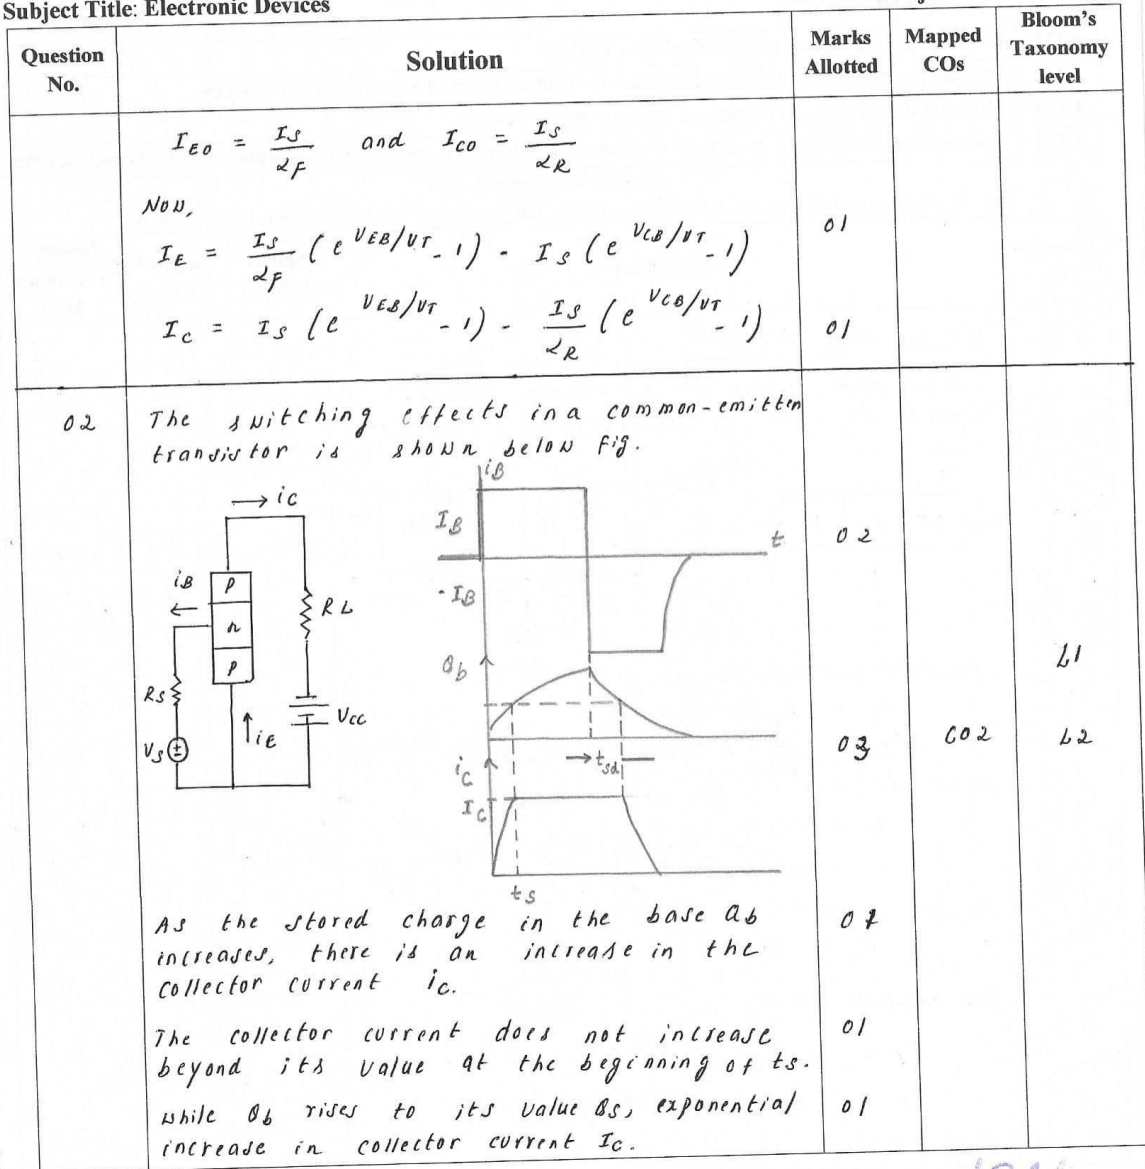 Subject Title: Electronic Devices
Question No.
Solution
Marks Allotted
Mapped COs
Bloom's Taxonomy level
I_E0 = I_S / α_F and I_C0 = I_S / α_R
Now,
I_E = I_S / α_F (e^{V_EB/V_T} - 1) - I_S (e^{V_CB/V_T} - 1) 01
I_C = I_S (e^{V_EB/V_T} - 1) - I_S / α_R (e^{V_CB/V_T} - 1) 01
02
The switching effects in a common-emitter
transistor is shown below Fig.
→ i_C
i_B
←
P
n
P
R_L
R_S
V_S
↑ i_E
V_CC
i_B
I_B
t
- I_B
Q_b
→ t_sd
i_C
I_C
t_s
02
03
CO2
L1
L2
As the stored charge in the base Q_b
increases, there is an increase in the
collector current i_C.
01
The collector current does not increase
beyond its value at the beginning of t_s.
01
While Q_b rises to its value Q_s, exponential
increase in collector current I_C.
01